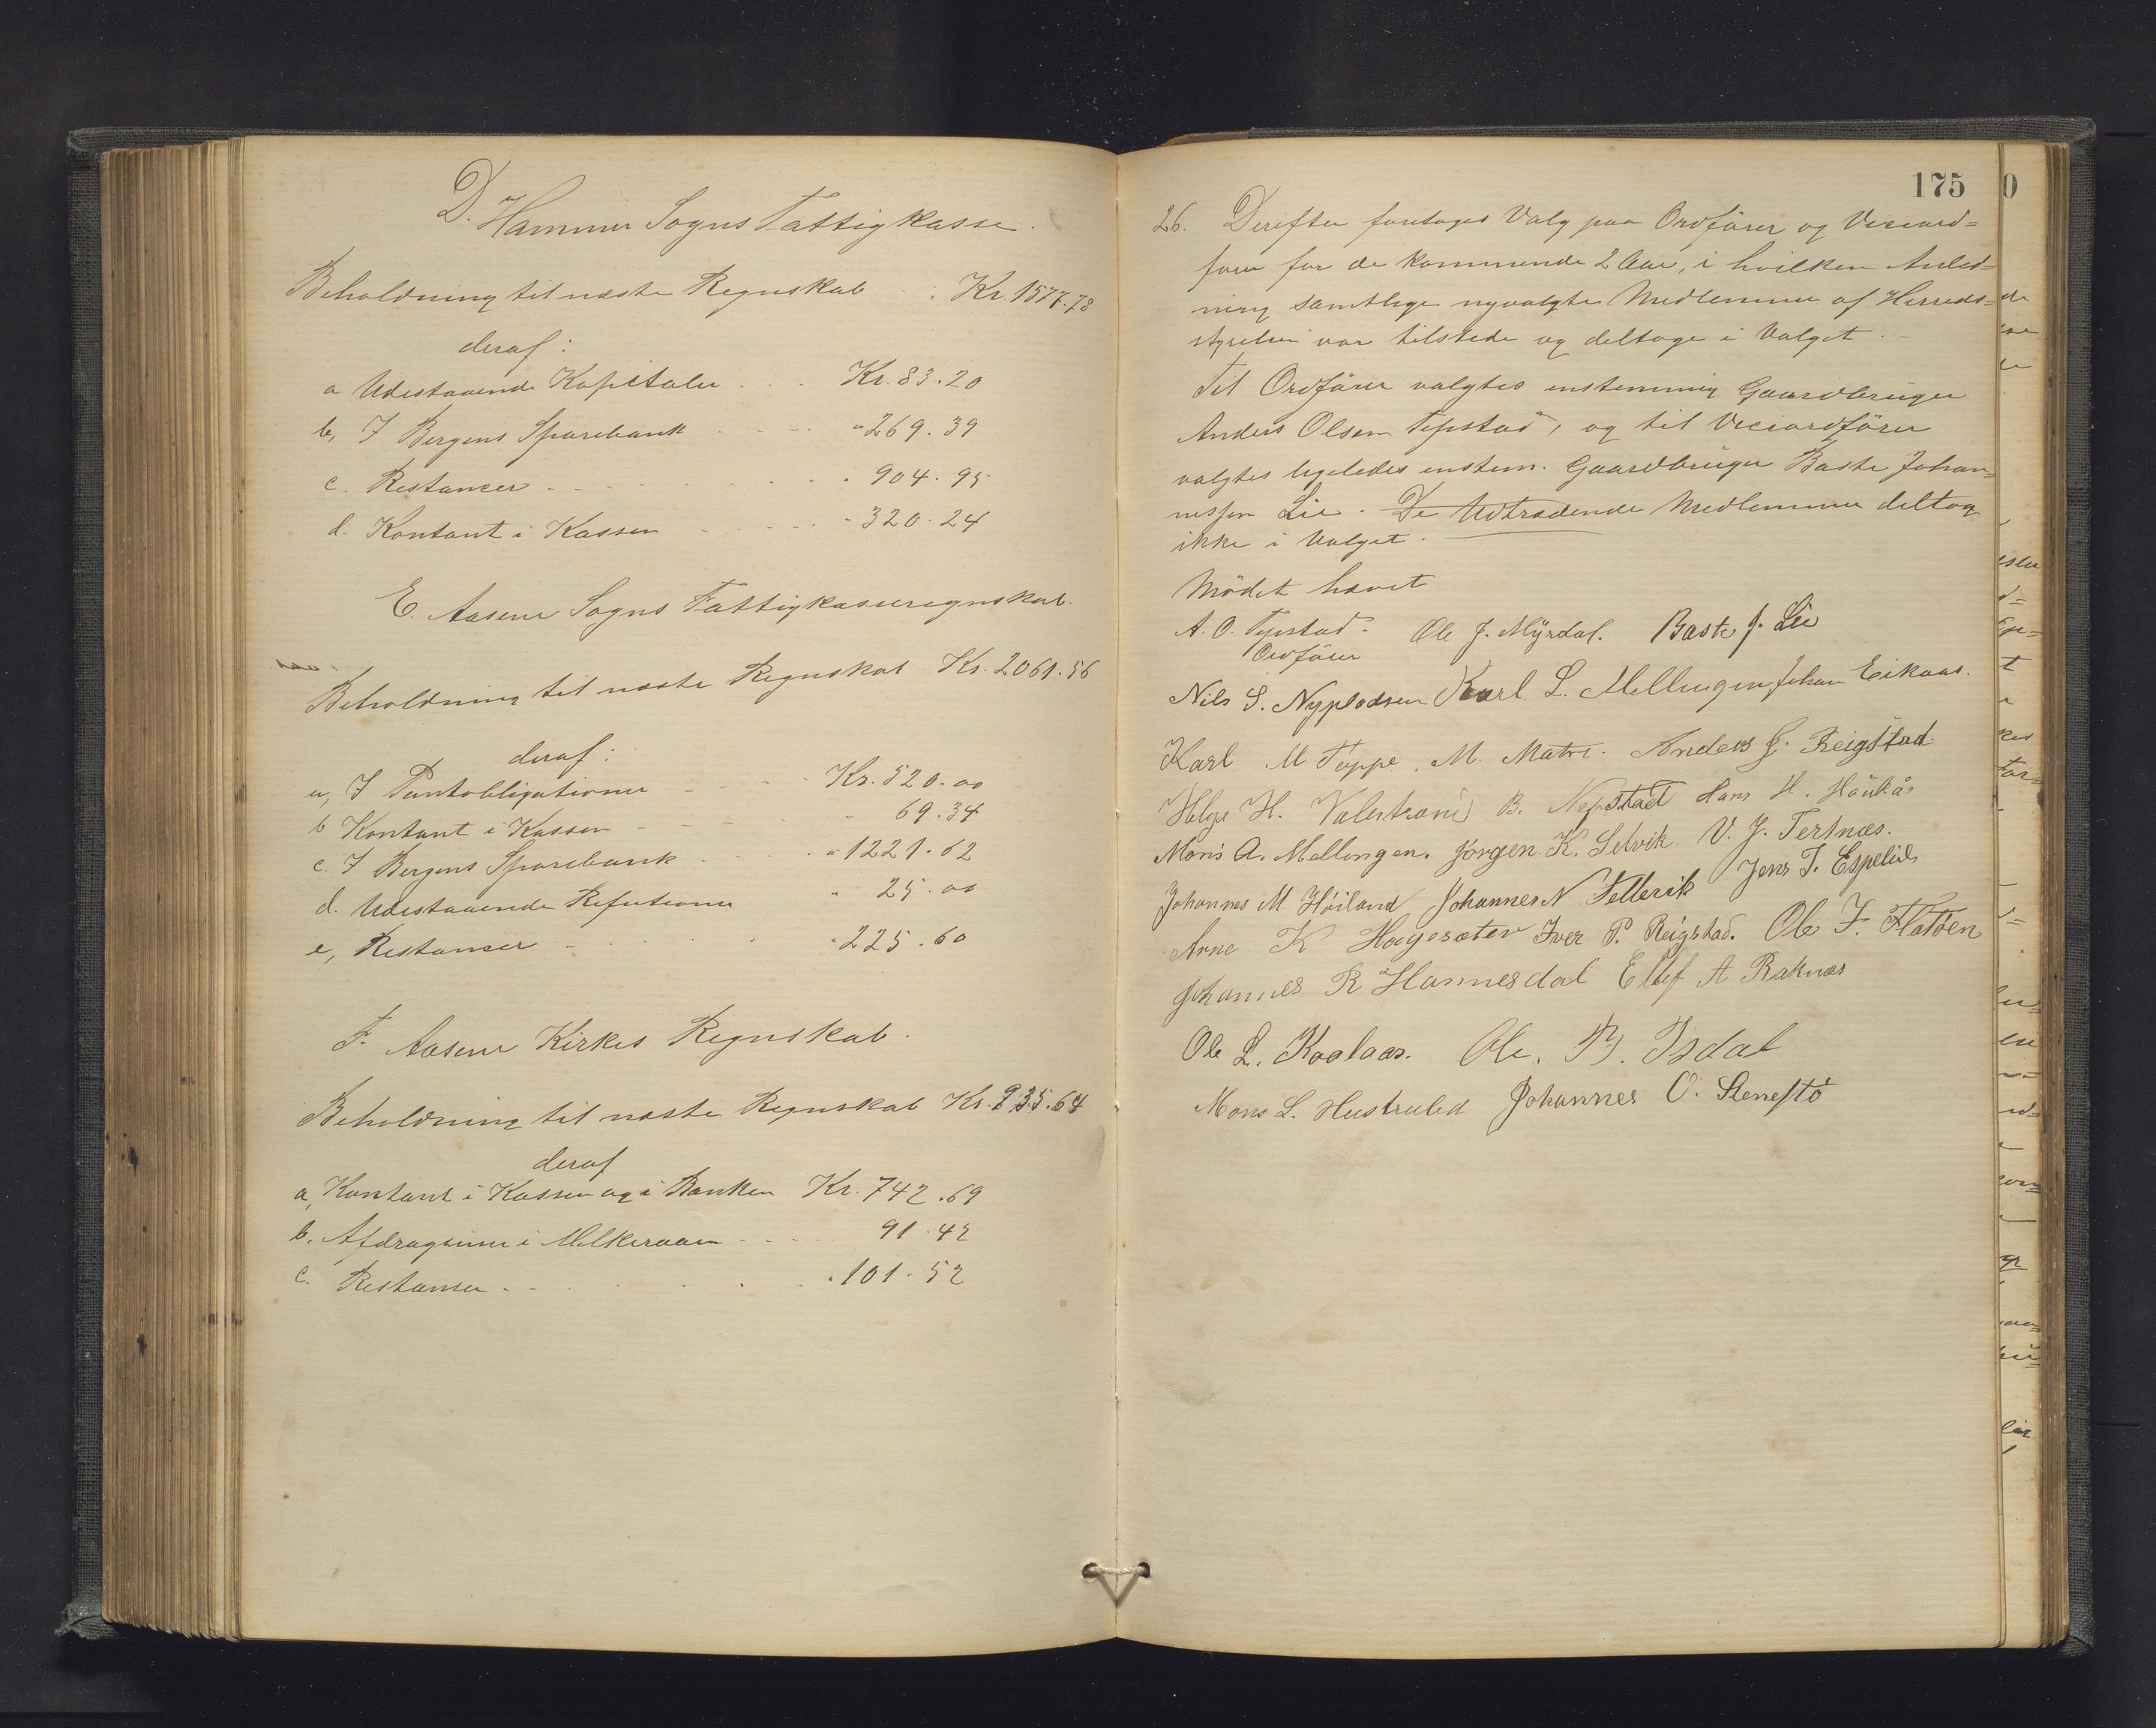 D. Hammer Sogns Fattigkasse.
Beholdning til næste Regnskab . Kr. 1577.78
deraf:
a Udestaaende Kapitaler . . . Kr. 83.20
b, I Bergens Sparebank - - - " 269.39
c. Restancer - - - - 904.95
d. Kontant i Kassen - - - 320.24
E. Aasene Sogns Fattigkasseregnskab.
Beholdning til næste Regnskab Kr. 2061.56
deraf:
a, I Pantobligationer - - - Kr. 520.00
b Kontant i Kassen - - - 69.34
c. I Bergens Sparebank - - " 1221.62
d. Udestaaende Refusioner " 25.00
e, Restancer - - - " 225.60
F. Aasene Kirkes Regnskab.
Beholdning til næste Regnskab Kr. 935.64
deraf
a, Kontant i Kassen og i Banken Kr. 742.69
b. Afdragene i - - - 91.42
c. Restanser - - - " 101.52
175
26. Derefter foretoges Valg paa Ordfører og Viceord=
fører for de kommende 2 Aar, i hvilken Anled=
ning samtlige nyvalgte Medlemmer af Herreds=
styrelsen var tilstede og deltoge i Valget. -
Til Ordfører valgtes enstemmig Gaardbruger
Anders Olsen Tepstad, og til Viceordfører
valgtes ligeledes enstem. Gaardbruger Baste Johan
nessen Lie. De Udtrædende Medlemmer deltog
ikke i Valget.
Mödet hævet
A. O. Tepstad. Ole J. Myrdal. Baste J. Lie
Ordfører
Nils S. Karl L. Mellingen Johan Eikaas.
Karl M Toppe. M. Matre. Anders J. Reigstad
Helge H. Valestrand B. Nepstad Hans H. Haukås
Mons A. Mellingen. Jørgen K. Selvik. V. J. Tertnæs.
Johannes M Höiland Johannes N Tellevik Jens T. Espelid
Arne K Hagesæter Iver P. Reigstad. Ole J. Flatöen
Johannes R Hannesdal Ellef A Raknæs
Ole L. Kaalaas. Ole. B. Isdal
Mons L. Hustruled Johannes O. Stenestö